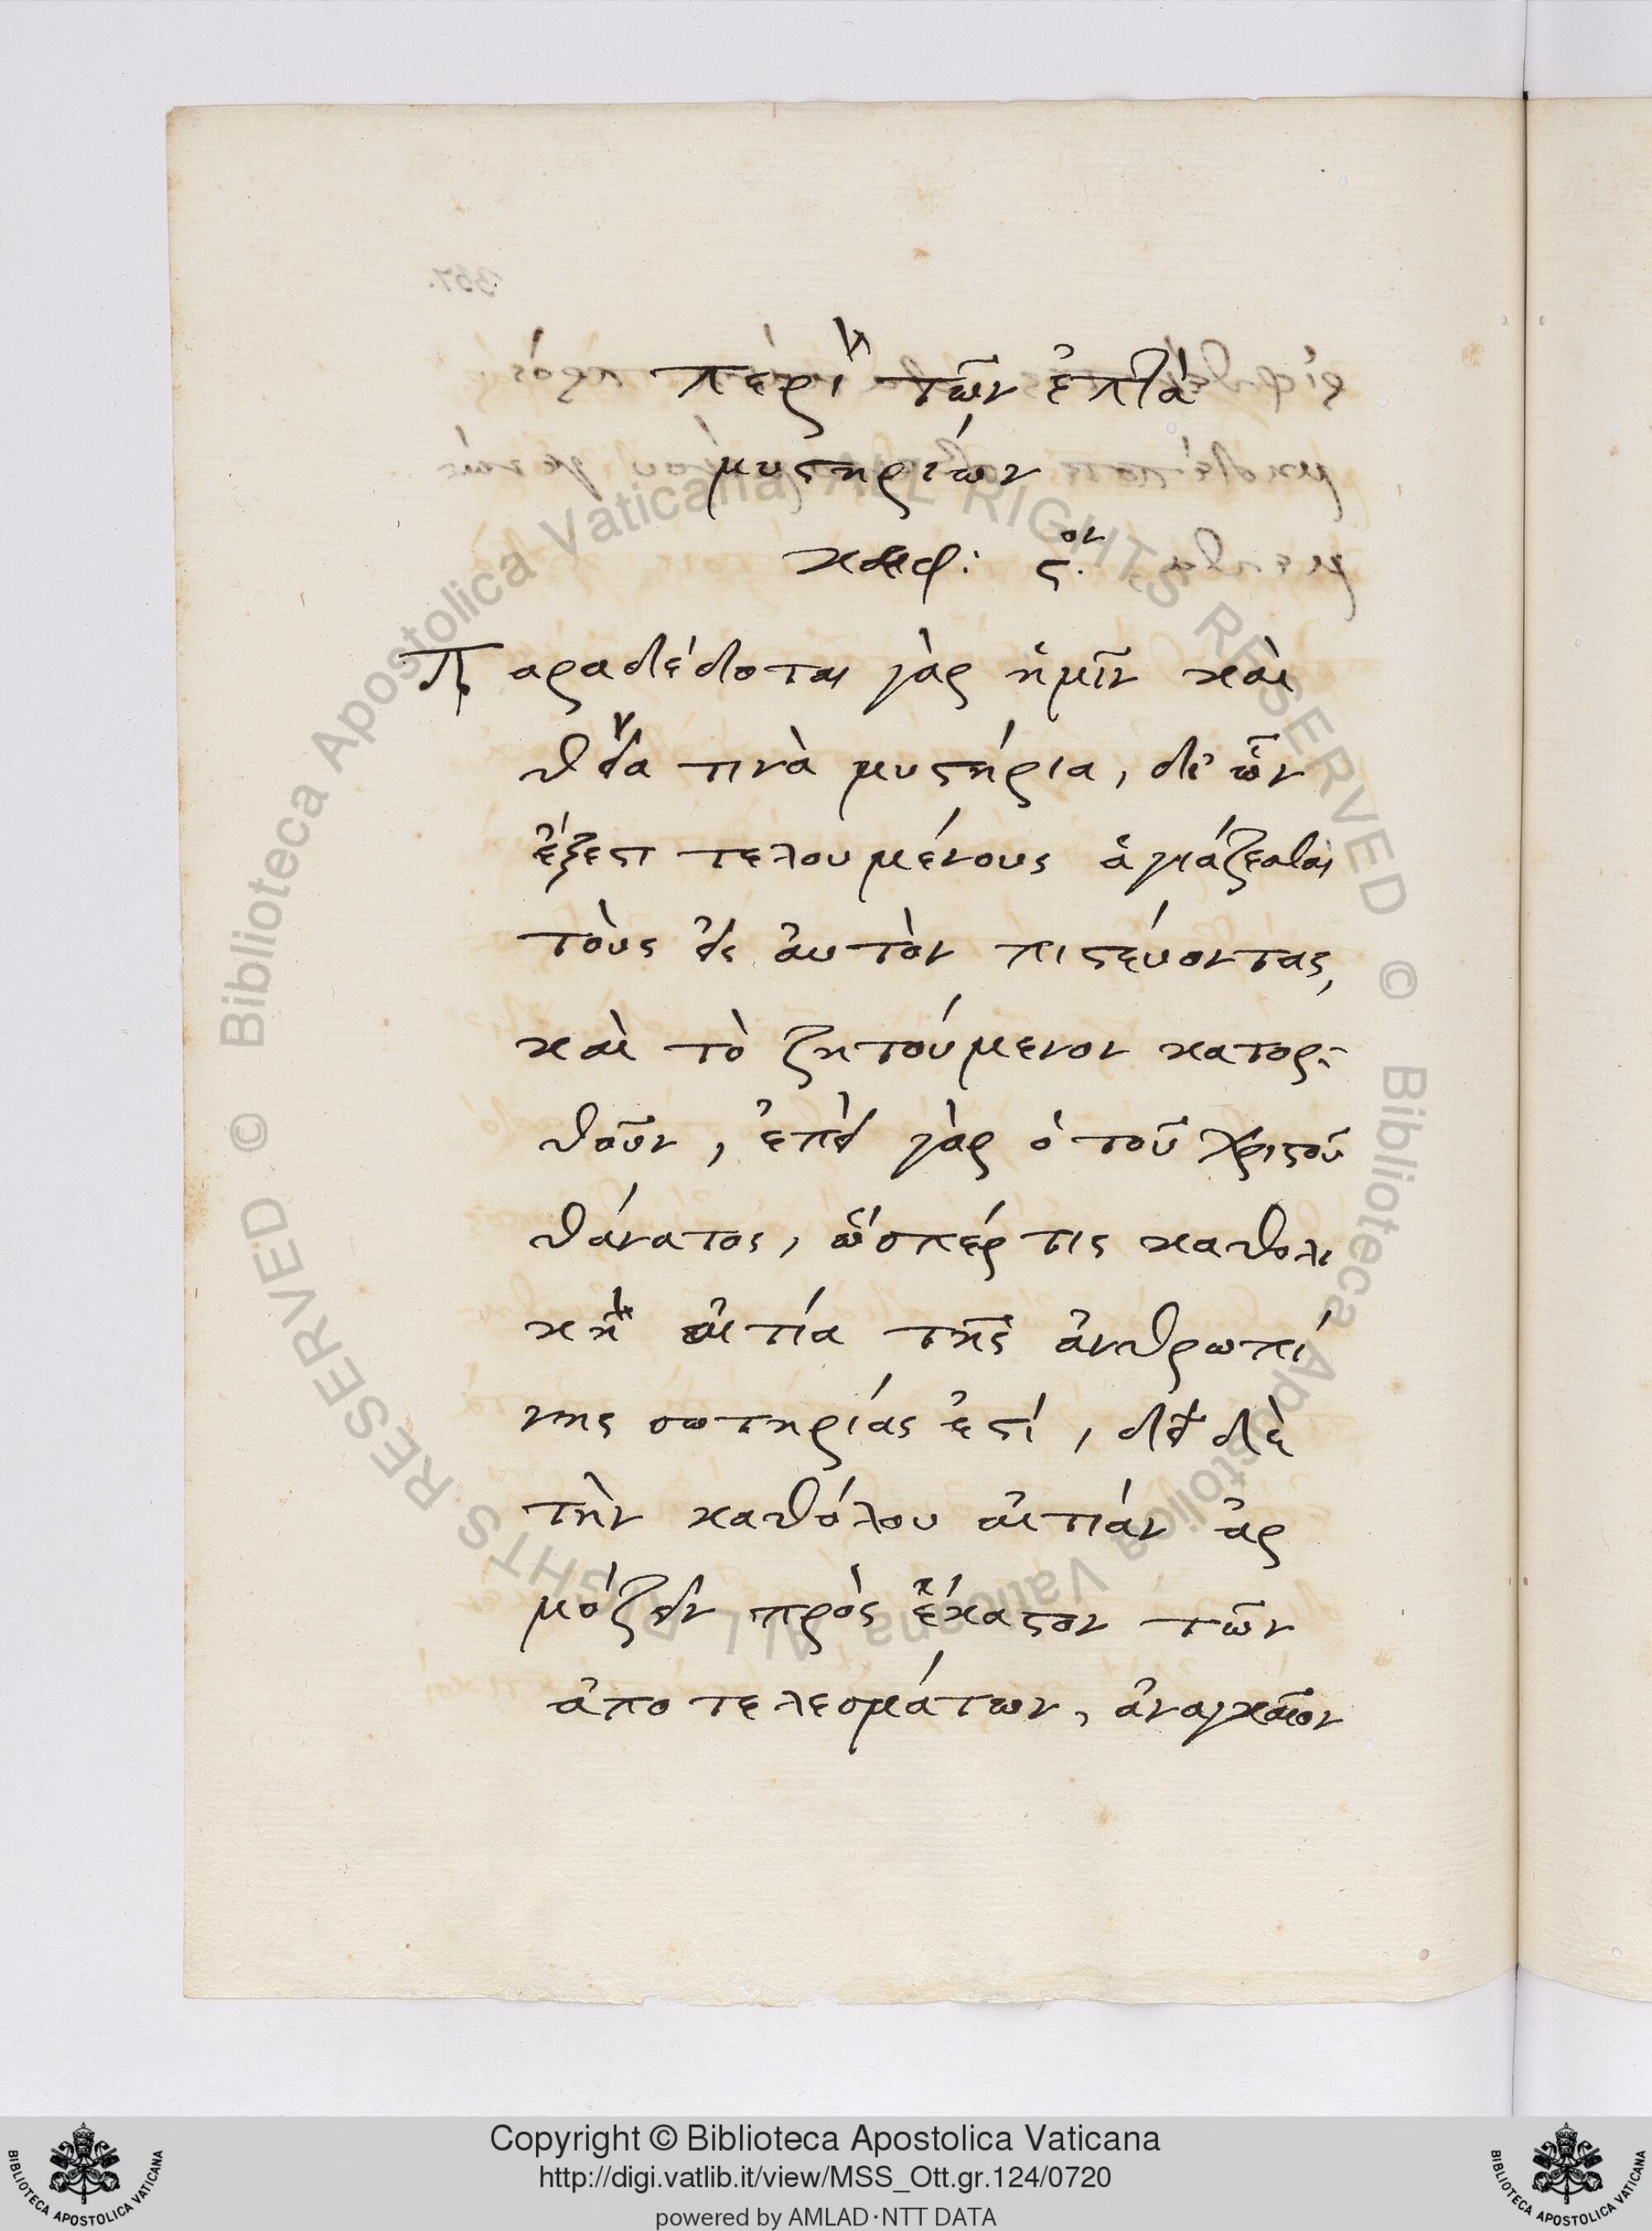 περὶ τῶν ἑπτὰ
μυστηρίων
κεφ: ϛ.ον
Παραδέδοται γὰρ ἡμῖν καὶ
θεῖα τινὰ μυστήρια, δι' ὧν
ἔξεστι τελουμένους ἁγιάζεσθαι
τοὺς εἰς αὐτὸν πιστεύοντας,
καὶ τὸ ζητούμενον κατορ-
θοῦν, ἐπεὶ γὰρ ὁ τοῦ Χριστοῦ
θάνατος, ὥσπέρ τις καθολι
κὴ αἰτία τῆς ἀνθρωπί
νης σωτηρίας ἐστί, δεῖ δὲ
τὴν καθόλου αἰτίαν ἁρ
μόζειν πρὸς ἕκαστον τῶν
ἀποτελεσμάτων, ἀναγκαῖον
Copyright © Biblioteca Apostolica Vaticana
http://digi.vatlib.it/view/MSS_Ott.gr.124/0720
powered by AMLAD·NTT DATA
BIBLIOTECA APOSTOLICA VATICANA
BIBLIOTECA APOSTOLICA VATICANA
© Biblioteca Apostolica Vaticana, ALL RIGHTS RESERVED
© Biblioteca Apostolica Vaticana ALL RIGHTS RESERVED